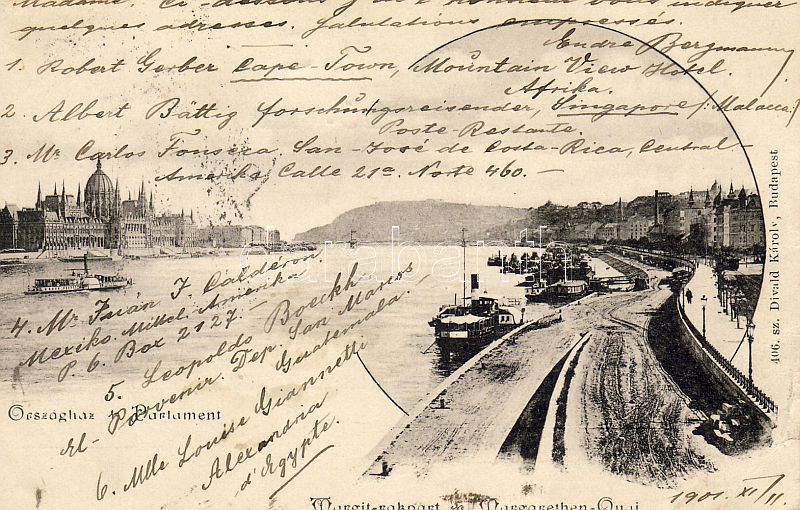 Madame. Ci-dessous j'ai l'honneur vous indiquer
quelques adresses. Salutations empressés.
Endre Bergmann
1. Robert Gerber Cape-Town, Mountain View Hotel.
Afrika.
2. Albert Bättig forschungsreisender, Singapore (Malacca)
Poste-Restante.
3. Mr Carlos Fonseca San-José de Costa-Rica, Central-
Amerika, Calle 21a Norte 460.-
4. Mr Juán J. Calderón
Mexiko, Mittel-Amerika
P. O. Box 2127-
5. Leopoldo Boeckh
El-Porvenir Dep. San Marcos
Guatemala.
6. Mlle Louise Giannetti
Alexandria
d'Egypte.
Országház Parlament
Margit-rakpart Margarethen-Quai
1901. XI/11.
406. sz. Divald Károly, Budapest
darabanth